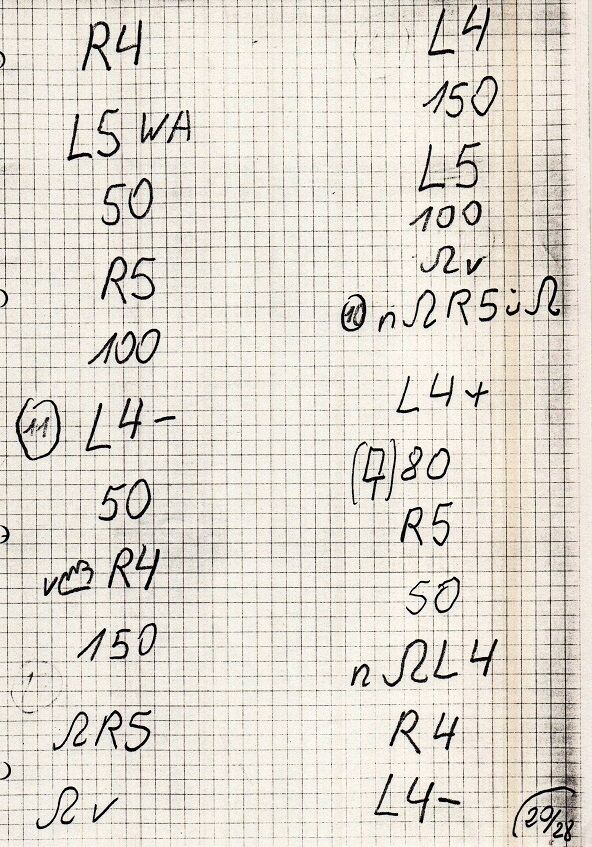 R4
L5 WA
50
R5
100
11 L4-
50
R4
150
ΩR5
Ω v
L4
150
L5
100
Ω v
10 n Ω R5 ü Ω
L4+
80
R5
50
n Ω L4
R4
L4-
20/28